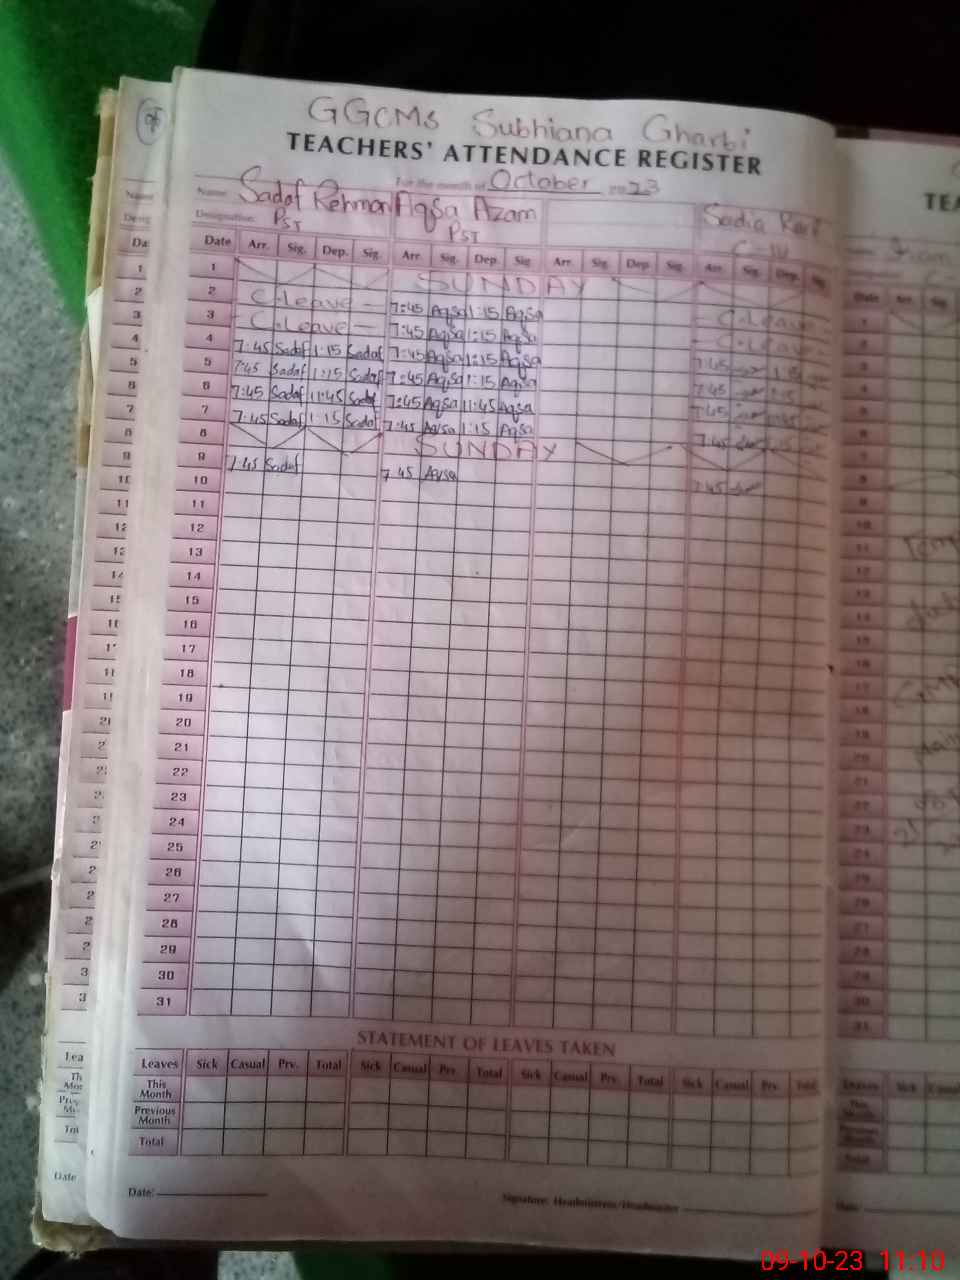 GGCMS Subhiana Gharbi
TEACHERS' ATTENDANCE REGISTER
For the month of October 2023
Name: Sadaf Rehman Aqsa Azam Sadia
Designation: PST PST
Date Arr. Sig. Dep. Sig. Arr. Sig. Dep. Sig. Arr. Sig. Dep. Sig. Arr. Sig. Dep.
1 SUNDAY
2 C.Leave 7:45 Aqsa 1:15 Aqsa C.Leave
3 C.Leave 7:45 Aqsa 1:15 Aqsa C.Leave
4 7:45 Sadaf 1:15 Sadaf 7:45 Aqsa 1:15 Aqsa 7:45
5 7:45 Sadaf 1:15 Sadaf 7:45 Aqsa 1:15 Aqsa 7:45
6 7:45 Sadaf 11:45 Sadaf 7:45 Aqsa 11:45 Aqsa 7:45
7 7:45 Sadaf 1:15 Sadaf 7:45 Aqsa 1:15 Aqsa 7:45
8 SUNDAY
9 7:45 Sadaf 7:45 Aqsa 7:45
10
11
12
13
14
15
16
17
18
19
20
21
22
23
24
25
26
27
28
29
30
31
STATEMENT OF LEAVES TAKEN
Leaves Sick Casual Prv. Total Sick Casual Prv. Total Sick Casual Prv. Total Sick Casual Prv. Total
This Month
Previous Month
Total
Date: Signature: Headmistress/Headmaster
09-10-23 11:10